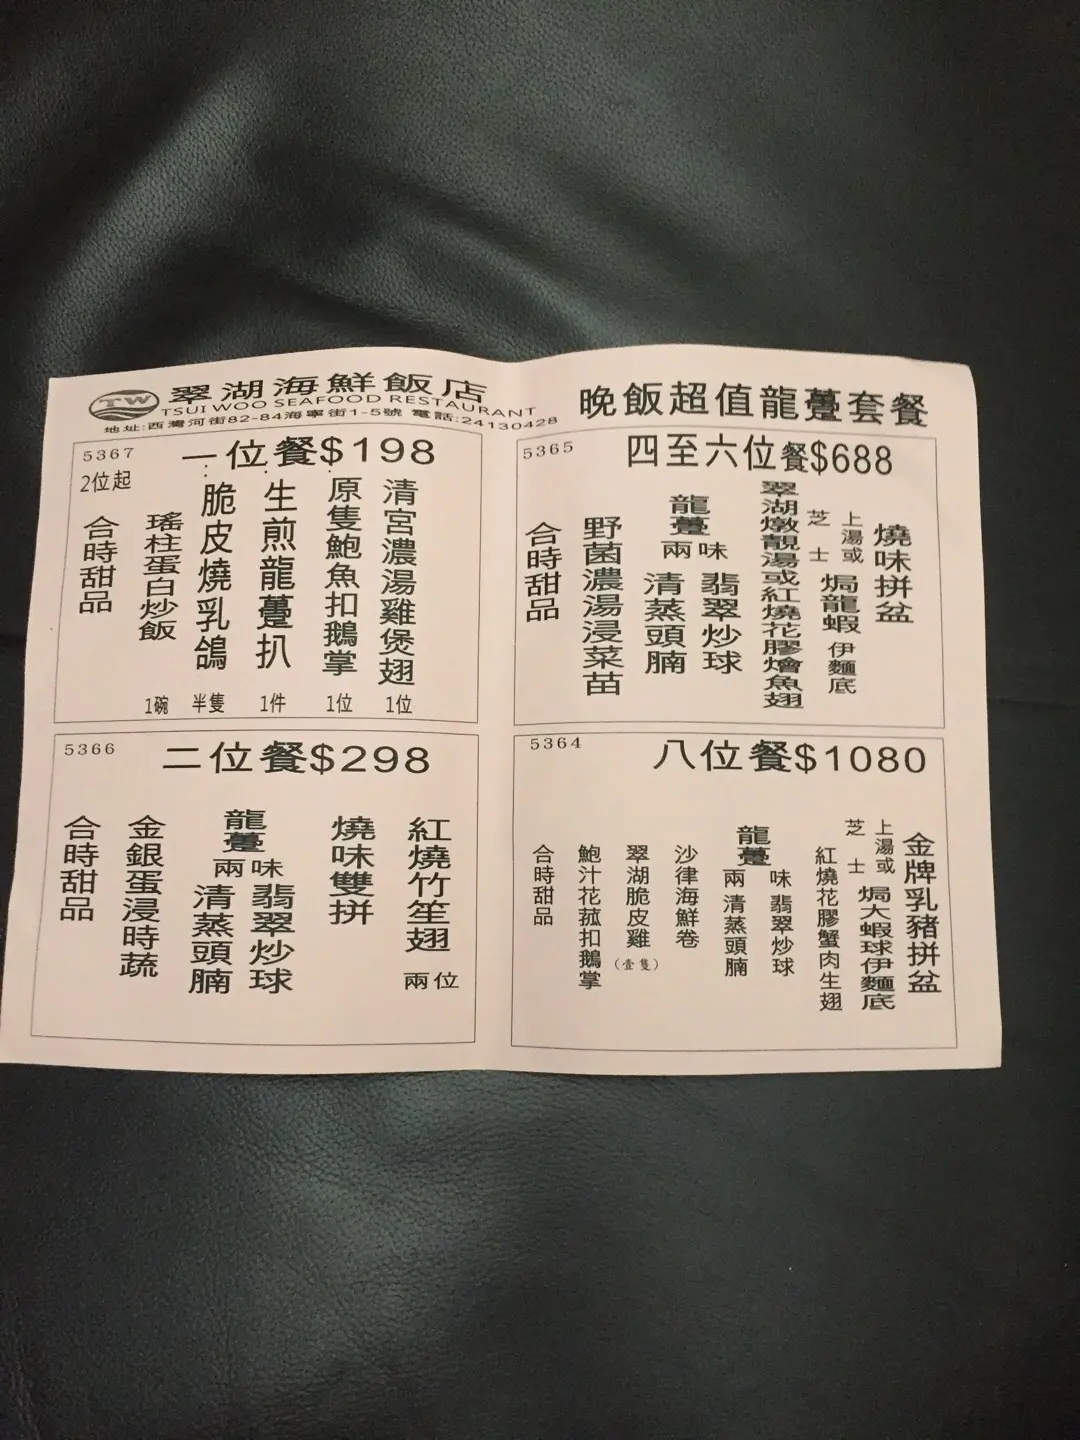 TW
翠湖海鮮飯店
TSUI WOO SEAFOOD RESTAURANT
地址:西灣河街82-84海寧街1-5號 電話:24130428
晚飯超值龍躉套餐
5367
一位餐$198
2位起
清宮濃湯雞煲翅 1位
原隻鮑魚扣鵝掌 1位
生煎龍躉扒 1件
脆皮燒乳鴿 半隻
瑤柱蛋白炒飯 1碗
合時甜品
5365
四至六位餐$688
燒味拼盆
上湯或芝士焗龍蝦伊麵底
翠湖燉靚湯或紅燒花膠燴魚翅
龍躉兩味
翡翠炒球
清蒸頭腩
野菌濃湯浸菜苗
合時甜品
5366
二位餐$298
紅燒竹笙翅 兩位
燒味雙拼
龍躉兩味
翡翠炒球
清蒸頭腩
金銀蛋浸時蔬
合時甜品
5364
八位餐$1080
金牌乳豬拼盆
上湯或芝士焗大蝦球伊麵底
紅燒花膠蟹肉生翅
龍躉兩味
翡翠炒球
清蒸頭腩
沙律海鮮卷
翠湖脆皮雞(壹隻)
鮑汁花菰扣鵝掌
合時甜品